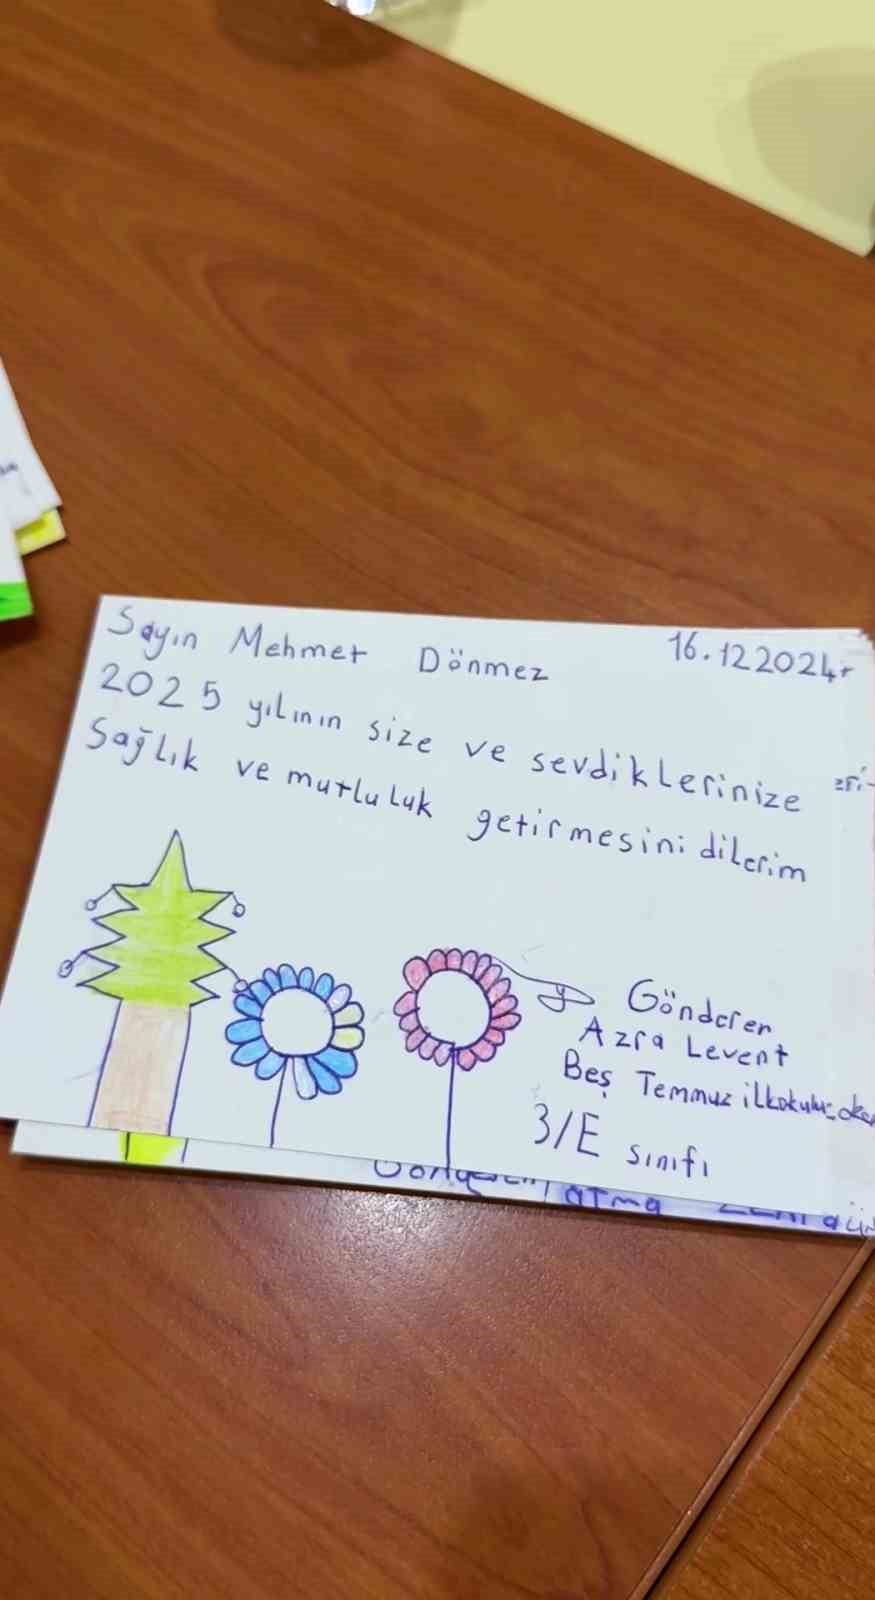 Sayın Mehmet Dönmez 16.12.2024
2025 yılının size ve sevdiklerinize
Sağlık ve mutluluk getirmesini dilerim
Gönderen
Azra Levent
Beş Temmuz ilkokulu
3/E sınıfı
atma